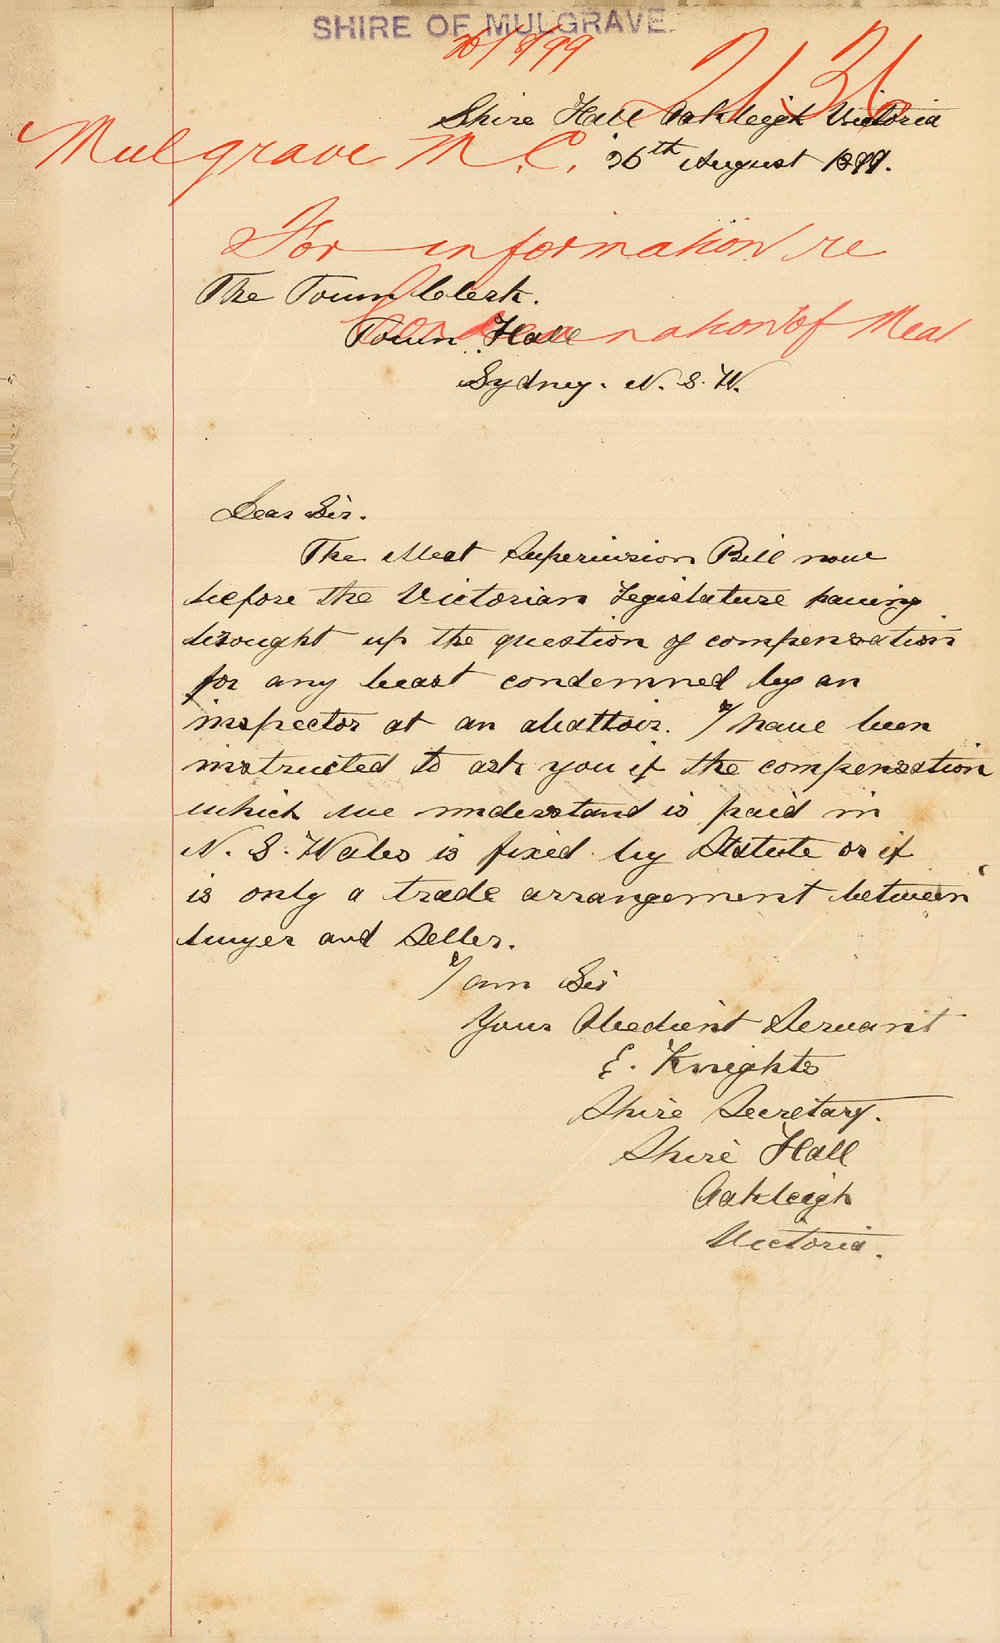 SHIRE OF MULGRAVE.
26/8/99
2136
Shire Hall Oakleigh Victoria
Mulgrave M.C.
26th August 1899.
For information re
The Town Clerk.
Condemnation of Meat
Town Hall
Sydney. N. S. W.
Dear Sir.
The Meat Supervision Bill now
before the Victorian Legislature having
brought up the question of compensation
for any beast condemned by an
inspector at an abattoir. I have been
instructed to ask you if the compensation
which we understand is paid in
N. S. Wales is fixed by Statute or if
is only a trade arrangement between
buyer and seller.
I am Sir
Your Obedient Servant
E. Knights
Shire Secretary.
Shire Hall
Oakleigh
Victoria.